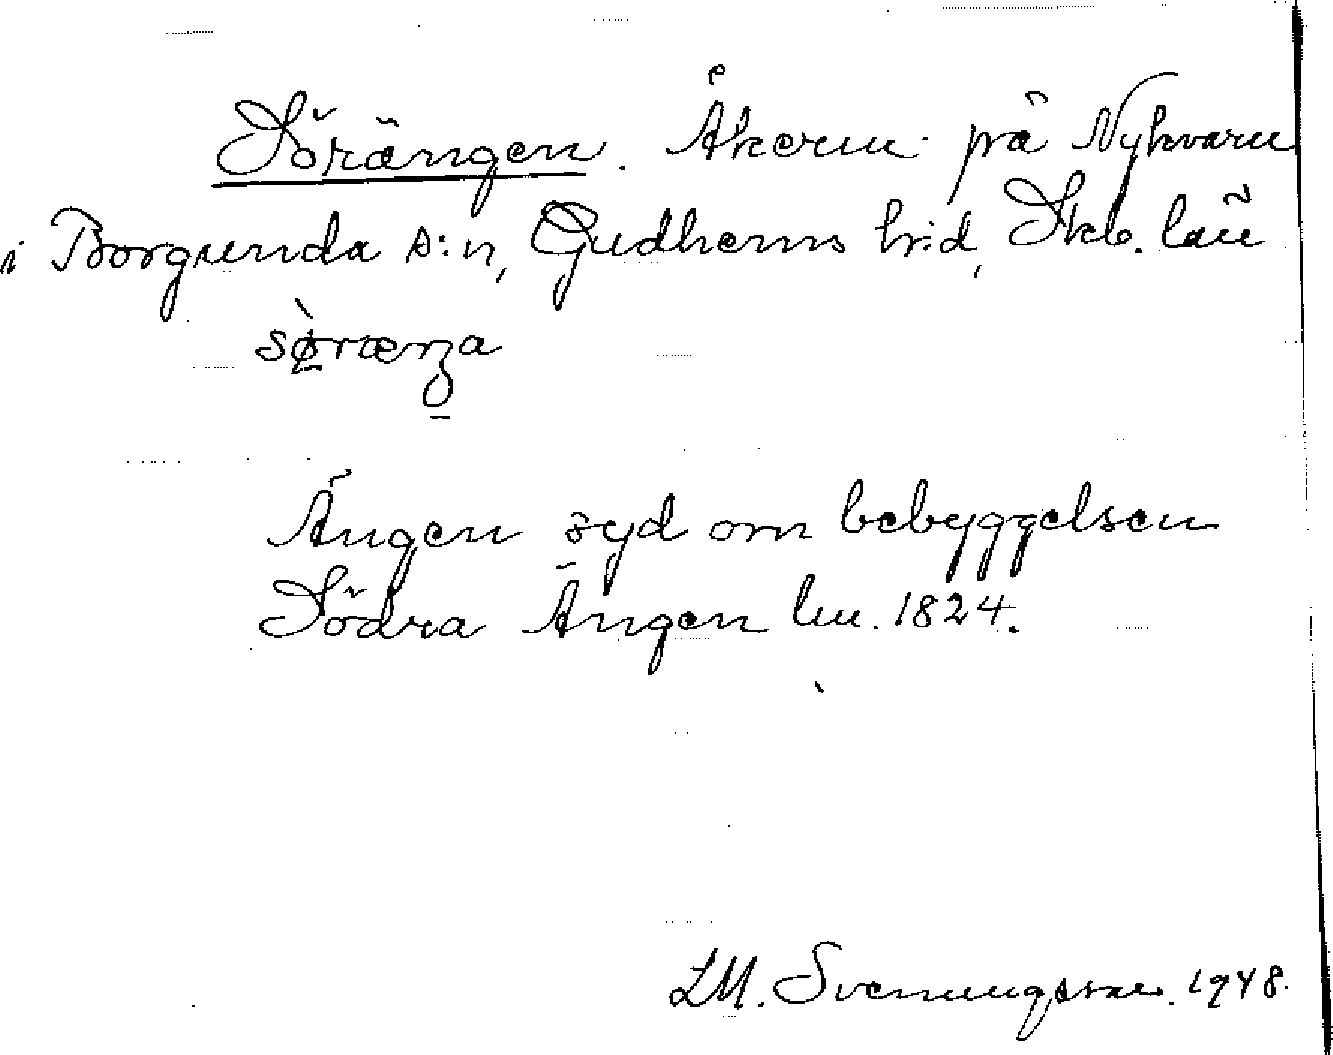 Sörängen. Åkerm. på Nykvarn
i Borgunda s:n, Gudhems h:d, Skb. län
Ängen syd om bebyggelsen
Södra Ängen lm. 1824.
LM. Svenungsson. 1948.